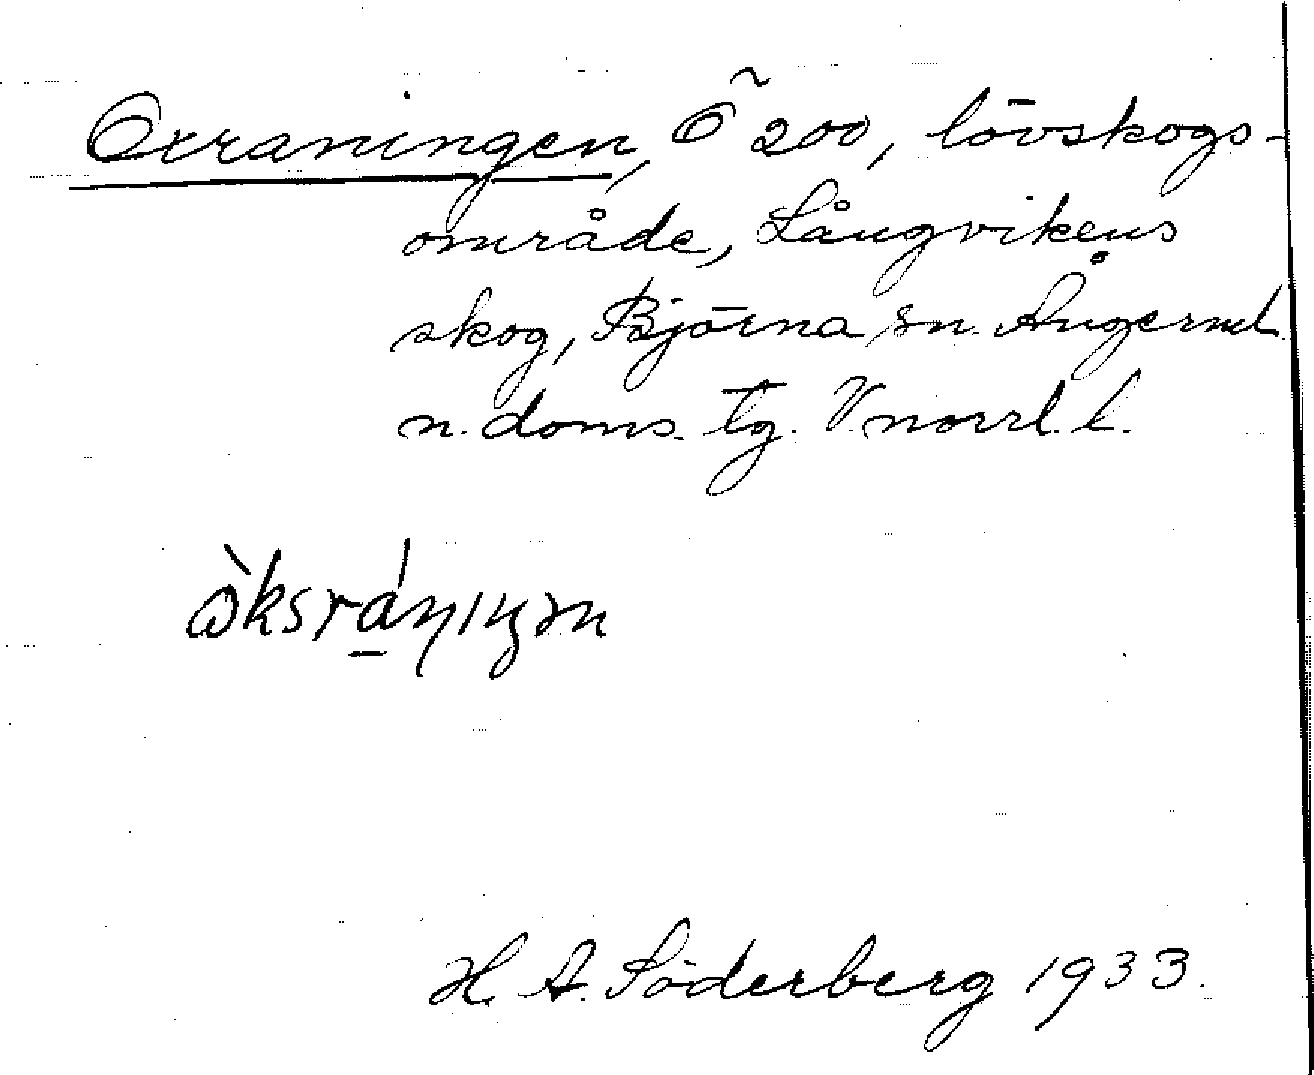 Oxraningen, Õ 200, lövskogs-
område, Långvikens
skog, Björna sn. Ångerml.
n. doms. tg. V.norrl. l.
H. A. Söderberg 1933.